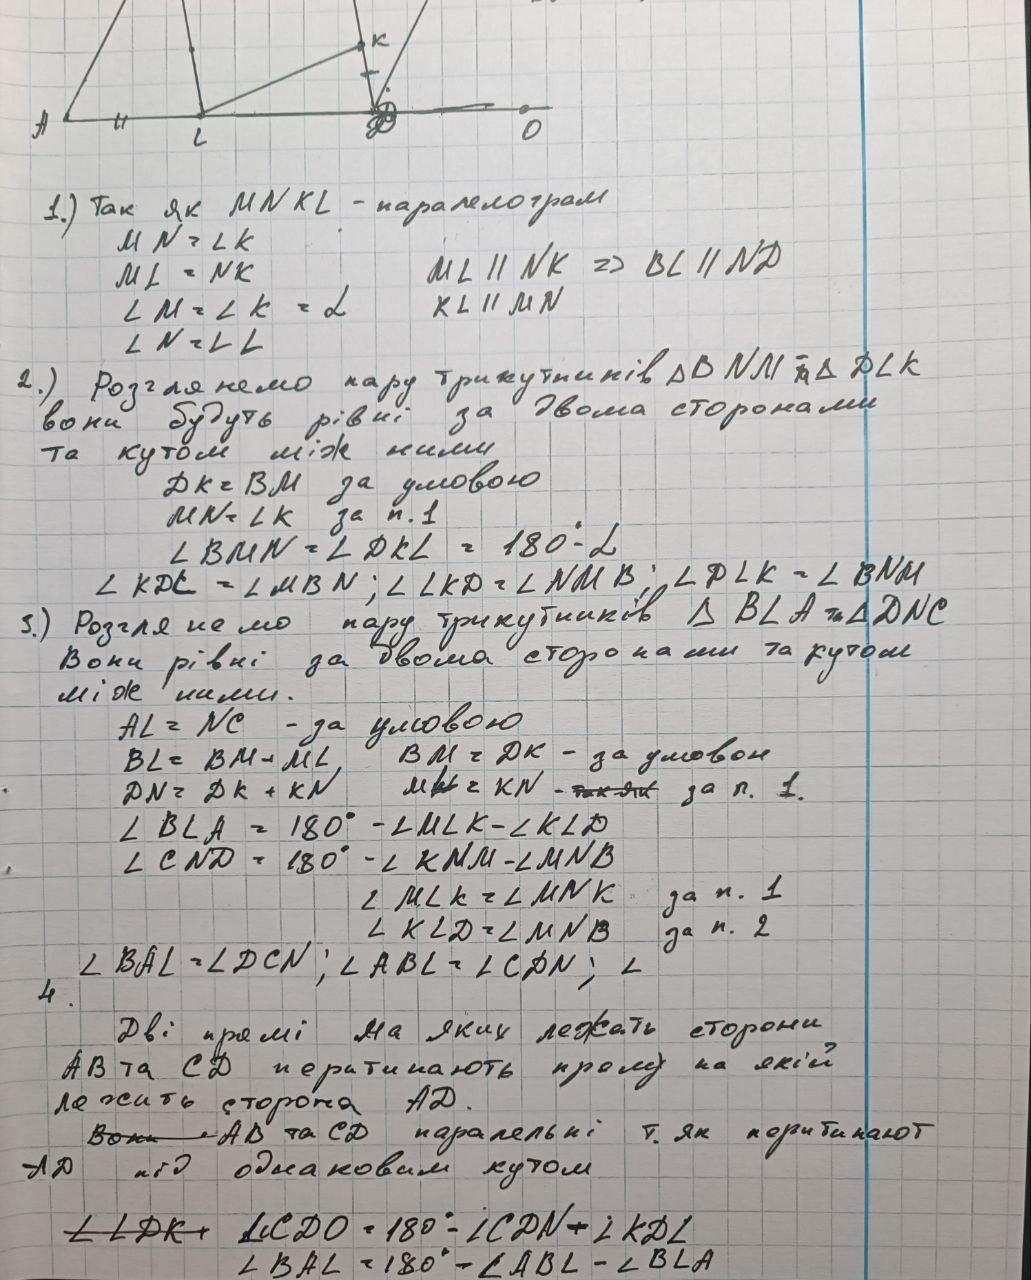 K
A
L
D
O
1.) Так як MNKL - паралелограм
MN = LK
ML = NK ML || NK => BL || ND
∠M = ∠K = α KL || MN
∠N = ∠L
2.) Розглянемо пару трикутників △BNM та △DLK
вони будуть рівні за двома сторонами
та кутом між ними
DK = BM за умовою
MN = LK за п. 1
∠BMN = ∠DKL = 180° - α
∠KDL = ∠MBN; ∠LKD = ∠NMB; ∠DLK = ∠BNM
3.) Розглянемо пару трикутників △ BLA та △DNC
Вони рівні за двома сторонами та кутом
між ними.
AL = NC - за умовою
BL = BM + ML, BM = DK - за умовою
DN = DK + KN ML = KN - так як за п. 1.
∠BLA = 180° - ∠MLK - ∠KLD
∠CND = 180° - ∠KNM - ∠MNB
∠MLK = ∠MNK за п. 1
∠KLD = ∠MNB за п. 2
∠BAL = ∠DCN; ∠ABL = ∠CDN; ∠
4.
Дві прямі на яких лежать сторони
AB та CD перитинають пряму на якій
лежить сторона AD.
Вони AB та CD паралельні т. як перитинают
AD під однаковим кутом
∠LDK + ∠CDO = 180° - ∠CDN + ∠KDL
∠BAL = 180° - ∠ABL - ∠BLA